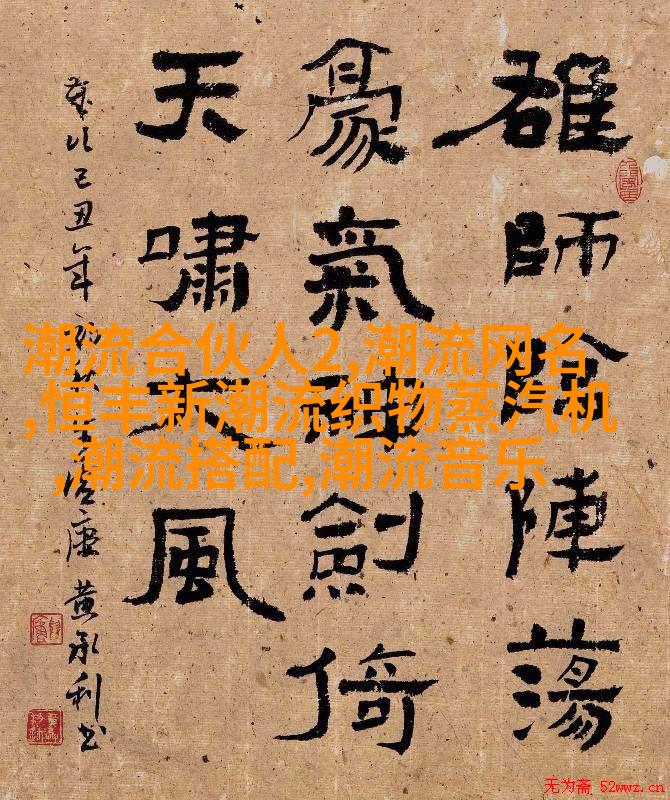 雄師陣蕩
豪氣劍倚
天嘯大風
歲次己丑年
黄承利书
潮流合伙人2,潮流网名
,恒丰新潮流织物蒸汽机
,潮流搭配,潮流音乐
无为斋 52wwz.cn